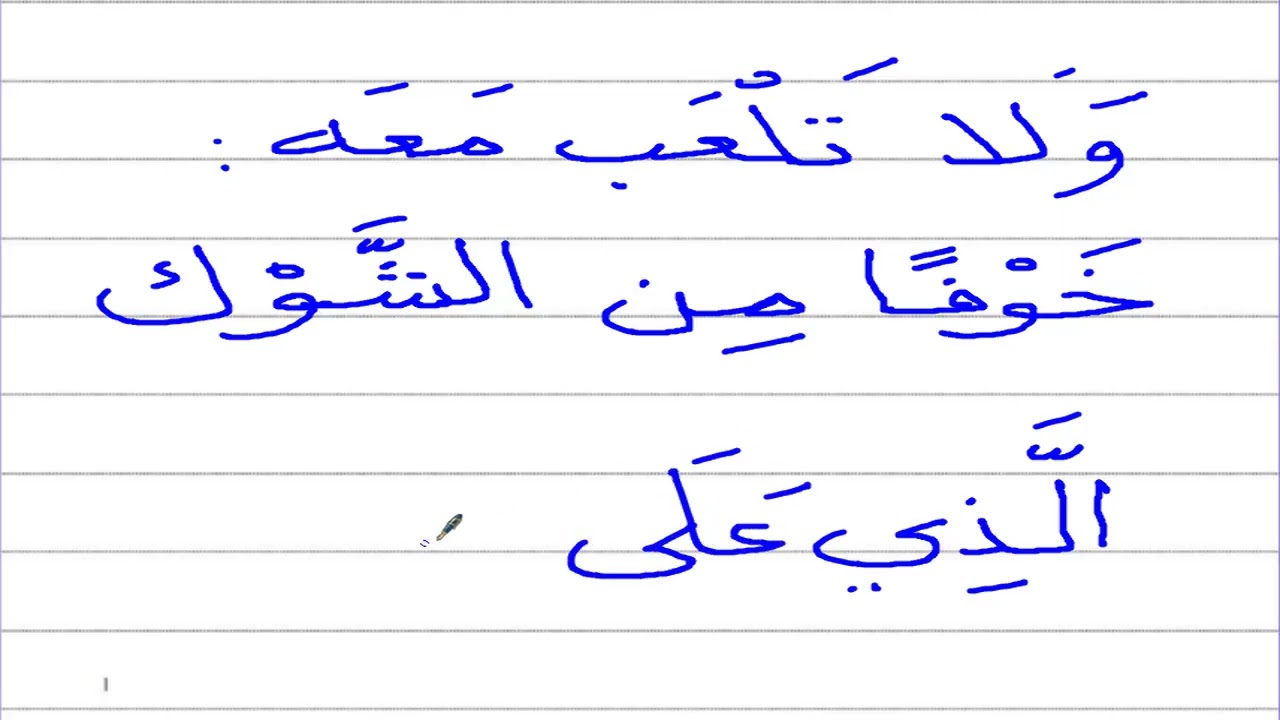 وَلَا تَلْعَب مَعَه :
خَوْفًا مِن الشَّوْك
الَّذِي عَلَى